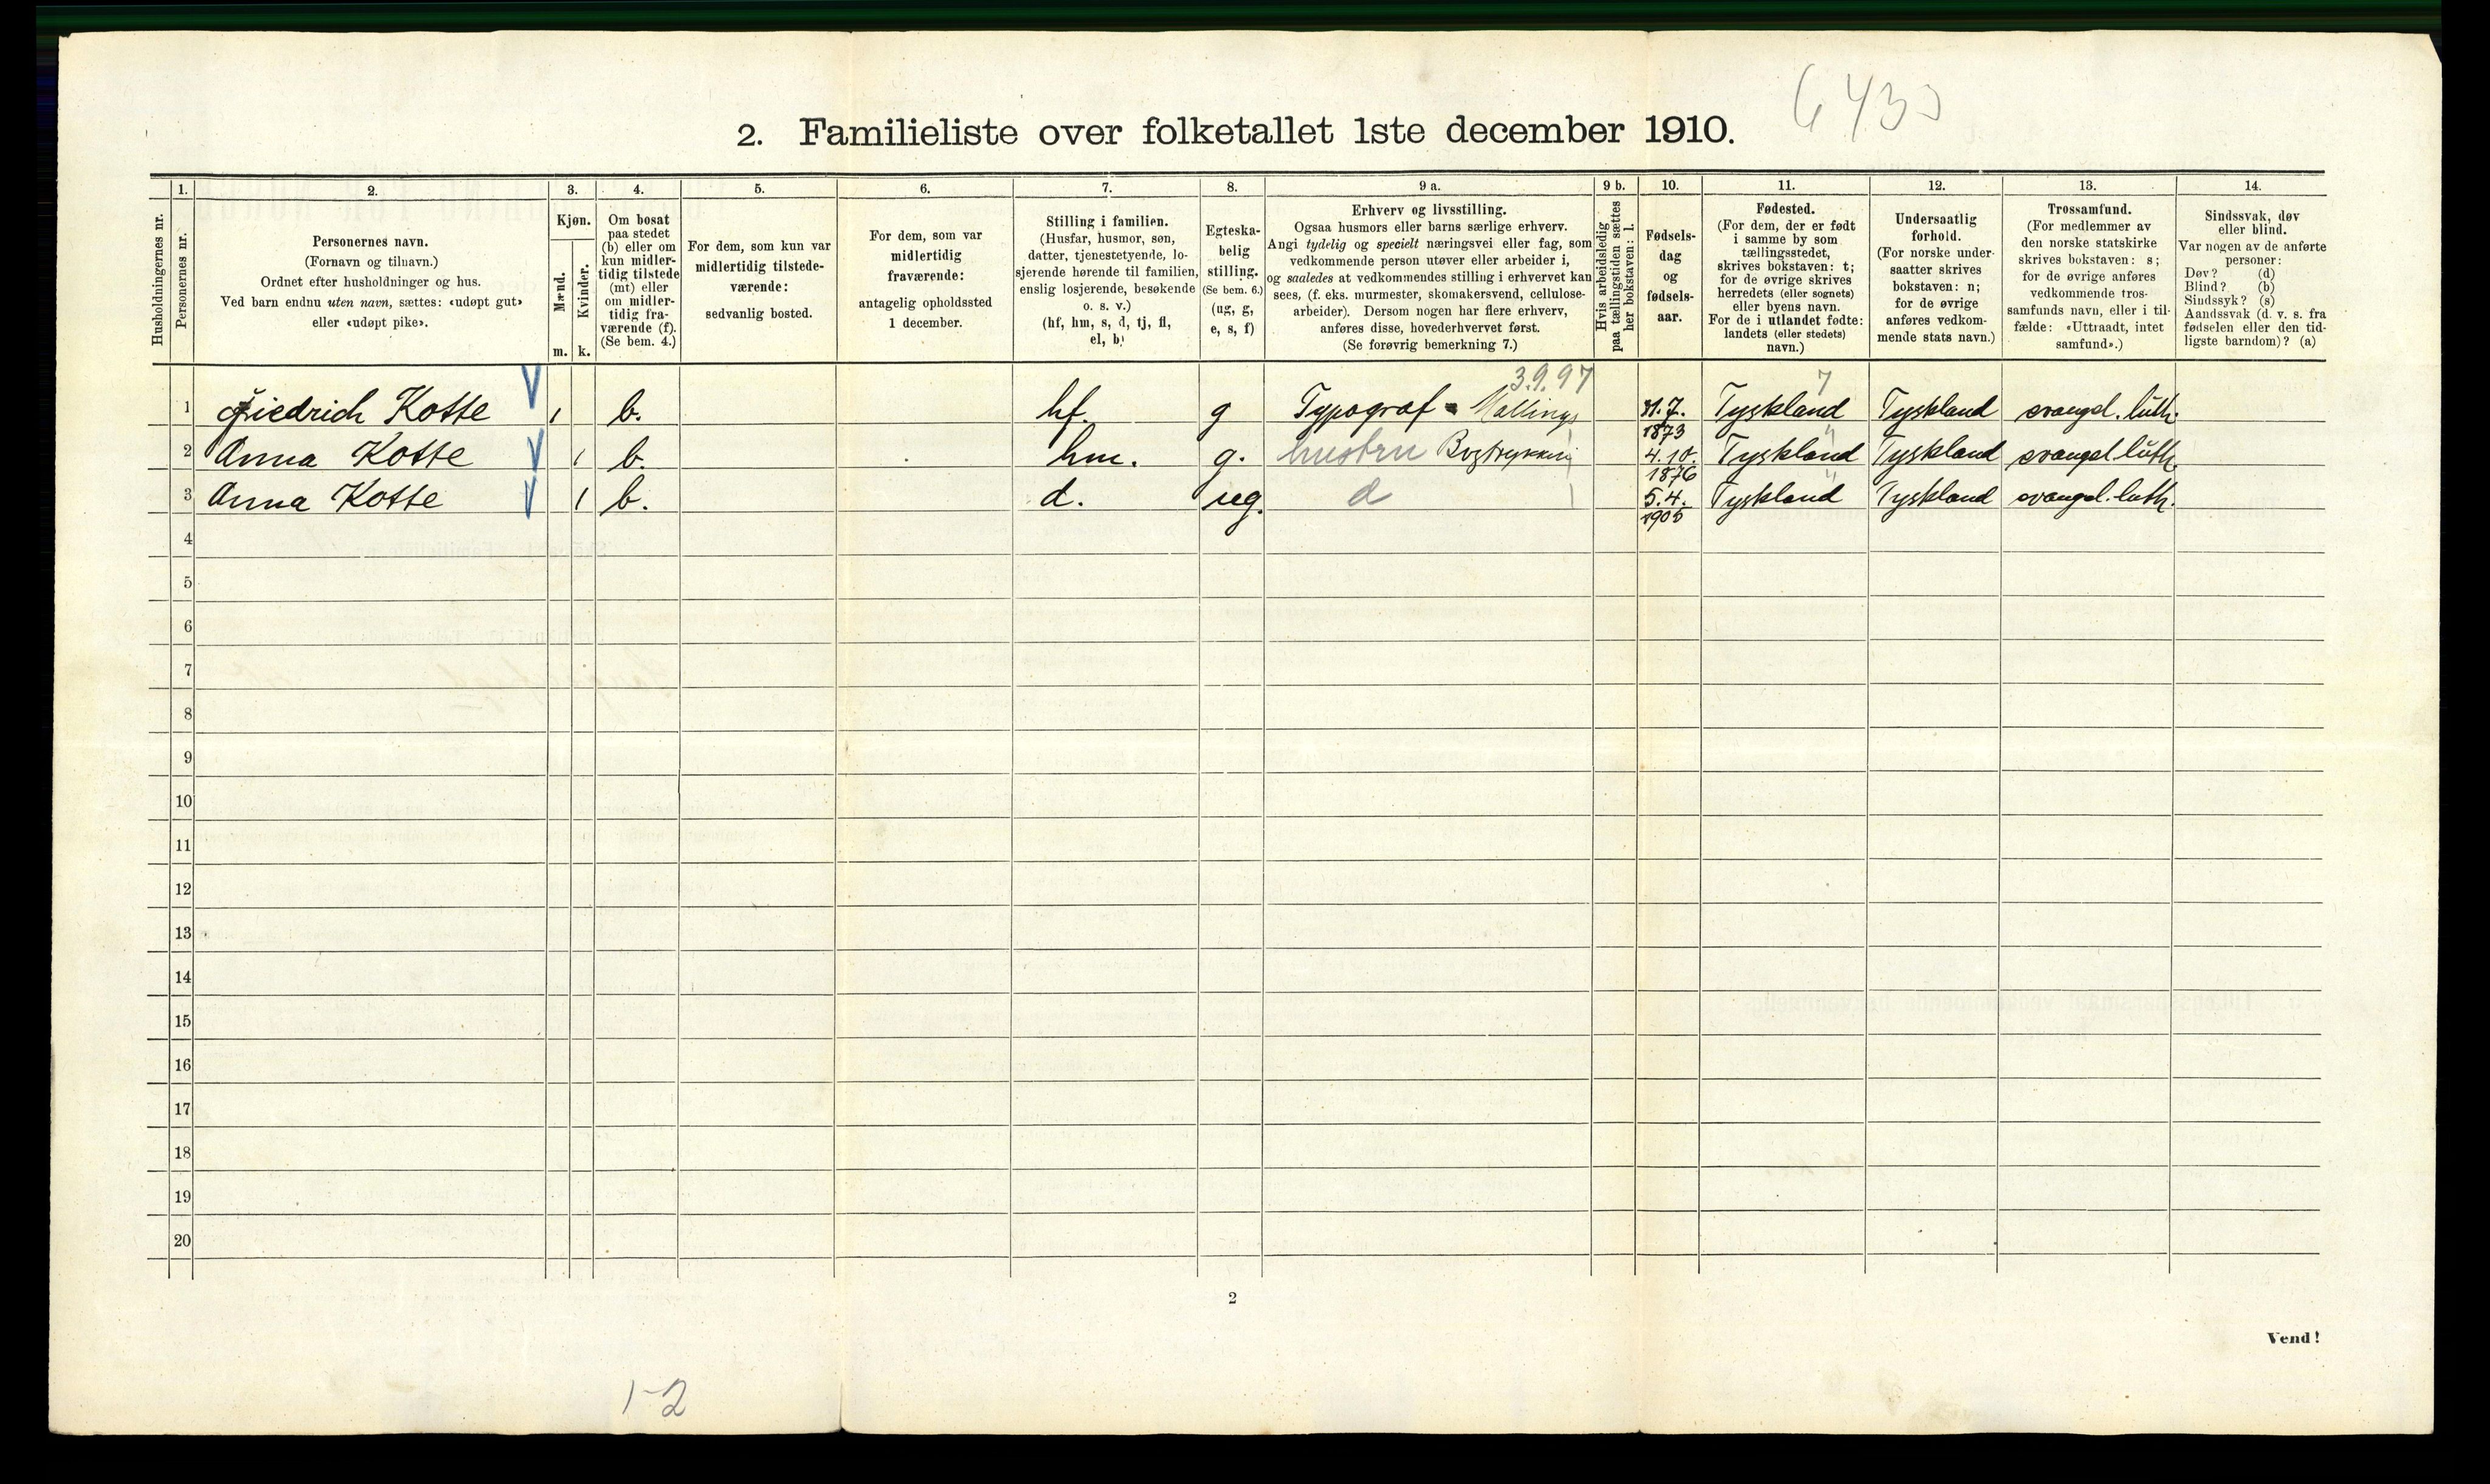 6430
2. Familieliste over folketallet 1ste december 1910.
1. 2. 3. 4. 5. 6. 7. 8. 9 a. 9 b. 10. 11. 12. 13. 14.
Husholdningernes nr.
Personernes nr.
Personernes navn.
(Fornavn og tilnavn.)
Ordnet efter husholdninger og hus.
Ved barn endnu uten navn, sættes: «udøpt gut»
eller «udøpt pike».
Kjøn.
Mænd.
Kvinder.
m. k.
Om bosat
paa stedet
(b) eller om
kun midler-
tidig tilstede
(mt) eller
om midler-
tidig fra-
værende (f).
(Se bem. 4.)
For dem, som kun var
midlertidig tilstede-
værende:
sedvanlig bosted.
For dem, som var
midlertidig
fraværende:
antagelig opholdssted
1 december.
Stilling i familien.
(Husfar, husmor, søn,
datter, tjenestetyende, lo-
sjerende hørende til familien,
enslig losjerende, besøkende
o. s. v.)
(hf, hm, s, d, tj, fl,
el, b)
Egteska-
belig
stilling.
(Se bem. 6.)
(ug, g,
e, s, f)
Erhverv og livsstilling.
Ogsaa husmors eller barns særlige erhverv.
Angi tydelig og specielt næringsvei eller fag, som
vedkommende person utøver eller arbeider i,
og saaledes at vedkommendes stilling i erhvervet kan
sees, (f. eks. murmester, skomakersvend, cellulose-
arbeider). Dersom nogen har flere erhverv,
anføres disse, hovederhvervet først.
(Se forøvrig bemerkning 7.)
Hvis arbeidsledig
paa tællingstiden sættes
her bokstaven: l.
Fødsels-
dag
og
fødsels-
aar.
Fødested.
(For dem, der er født
i samme by som
tællingsstedet,
skrives bokstaven: t;
for de øvrige skrives
herredets (eller sognets)
eller byens navn.
For de i utlandet fødte:
landets (eller stedets)
navn.)
Undersaatlig
forhold.
(For norske under-
saatter skrives
bokstaven: n;
for de øvrige
anføres vedkom-
mende stats navn.)
Trossamfund.
(For medlemmer av
den norske statskirke
skrives bokstaven: s;
for de øvrige anføres
vedkommende tros-
samfunds navn, eller i til-
fælde: «Uttraadt, intet
samfund».)
Sindssvak, døv
eller blind.
Var nogen av de anførte
personer:
Døv? (d)
Blind? (b)
Sindssyk? (s)
Aandssvak (d. v. s. fra
fødselen eller den tid-
ligste barndom)? (a)
3.9.97 7
1 Friedrich Kotte V 1 b. hf. g Typograf Mallings 31.7. 1873 Tyskland Tyskland evangel. luth.
2 Anna Kotte V 1 b. hm. g. hustru Bogtrykkeri 4.10. 1876 Tyskland Tyskland evangel. luth.
3 Anna Kotte V 1 b. d. ug. d 5.4. 1905 Tyskland Tyskland evangel. luth.
4
5
6
7
8
9
10
11
12
13
14
15
16
17
18
19
20
2
Vend!
1-2